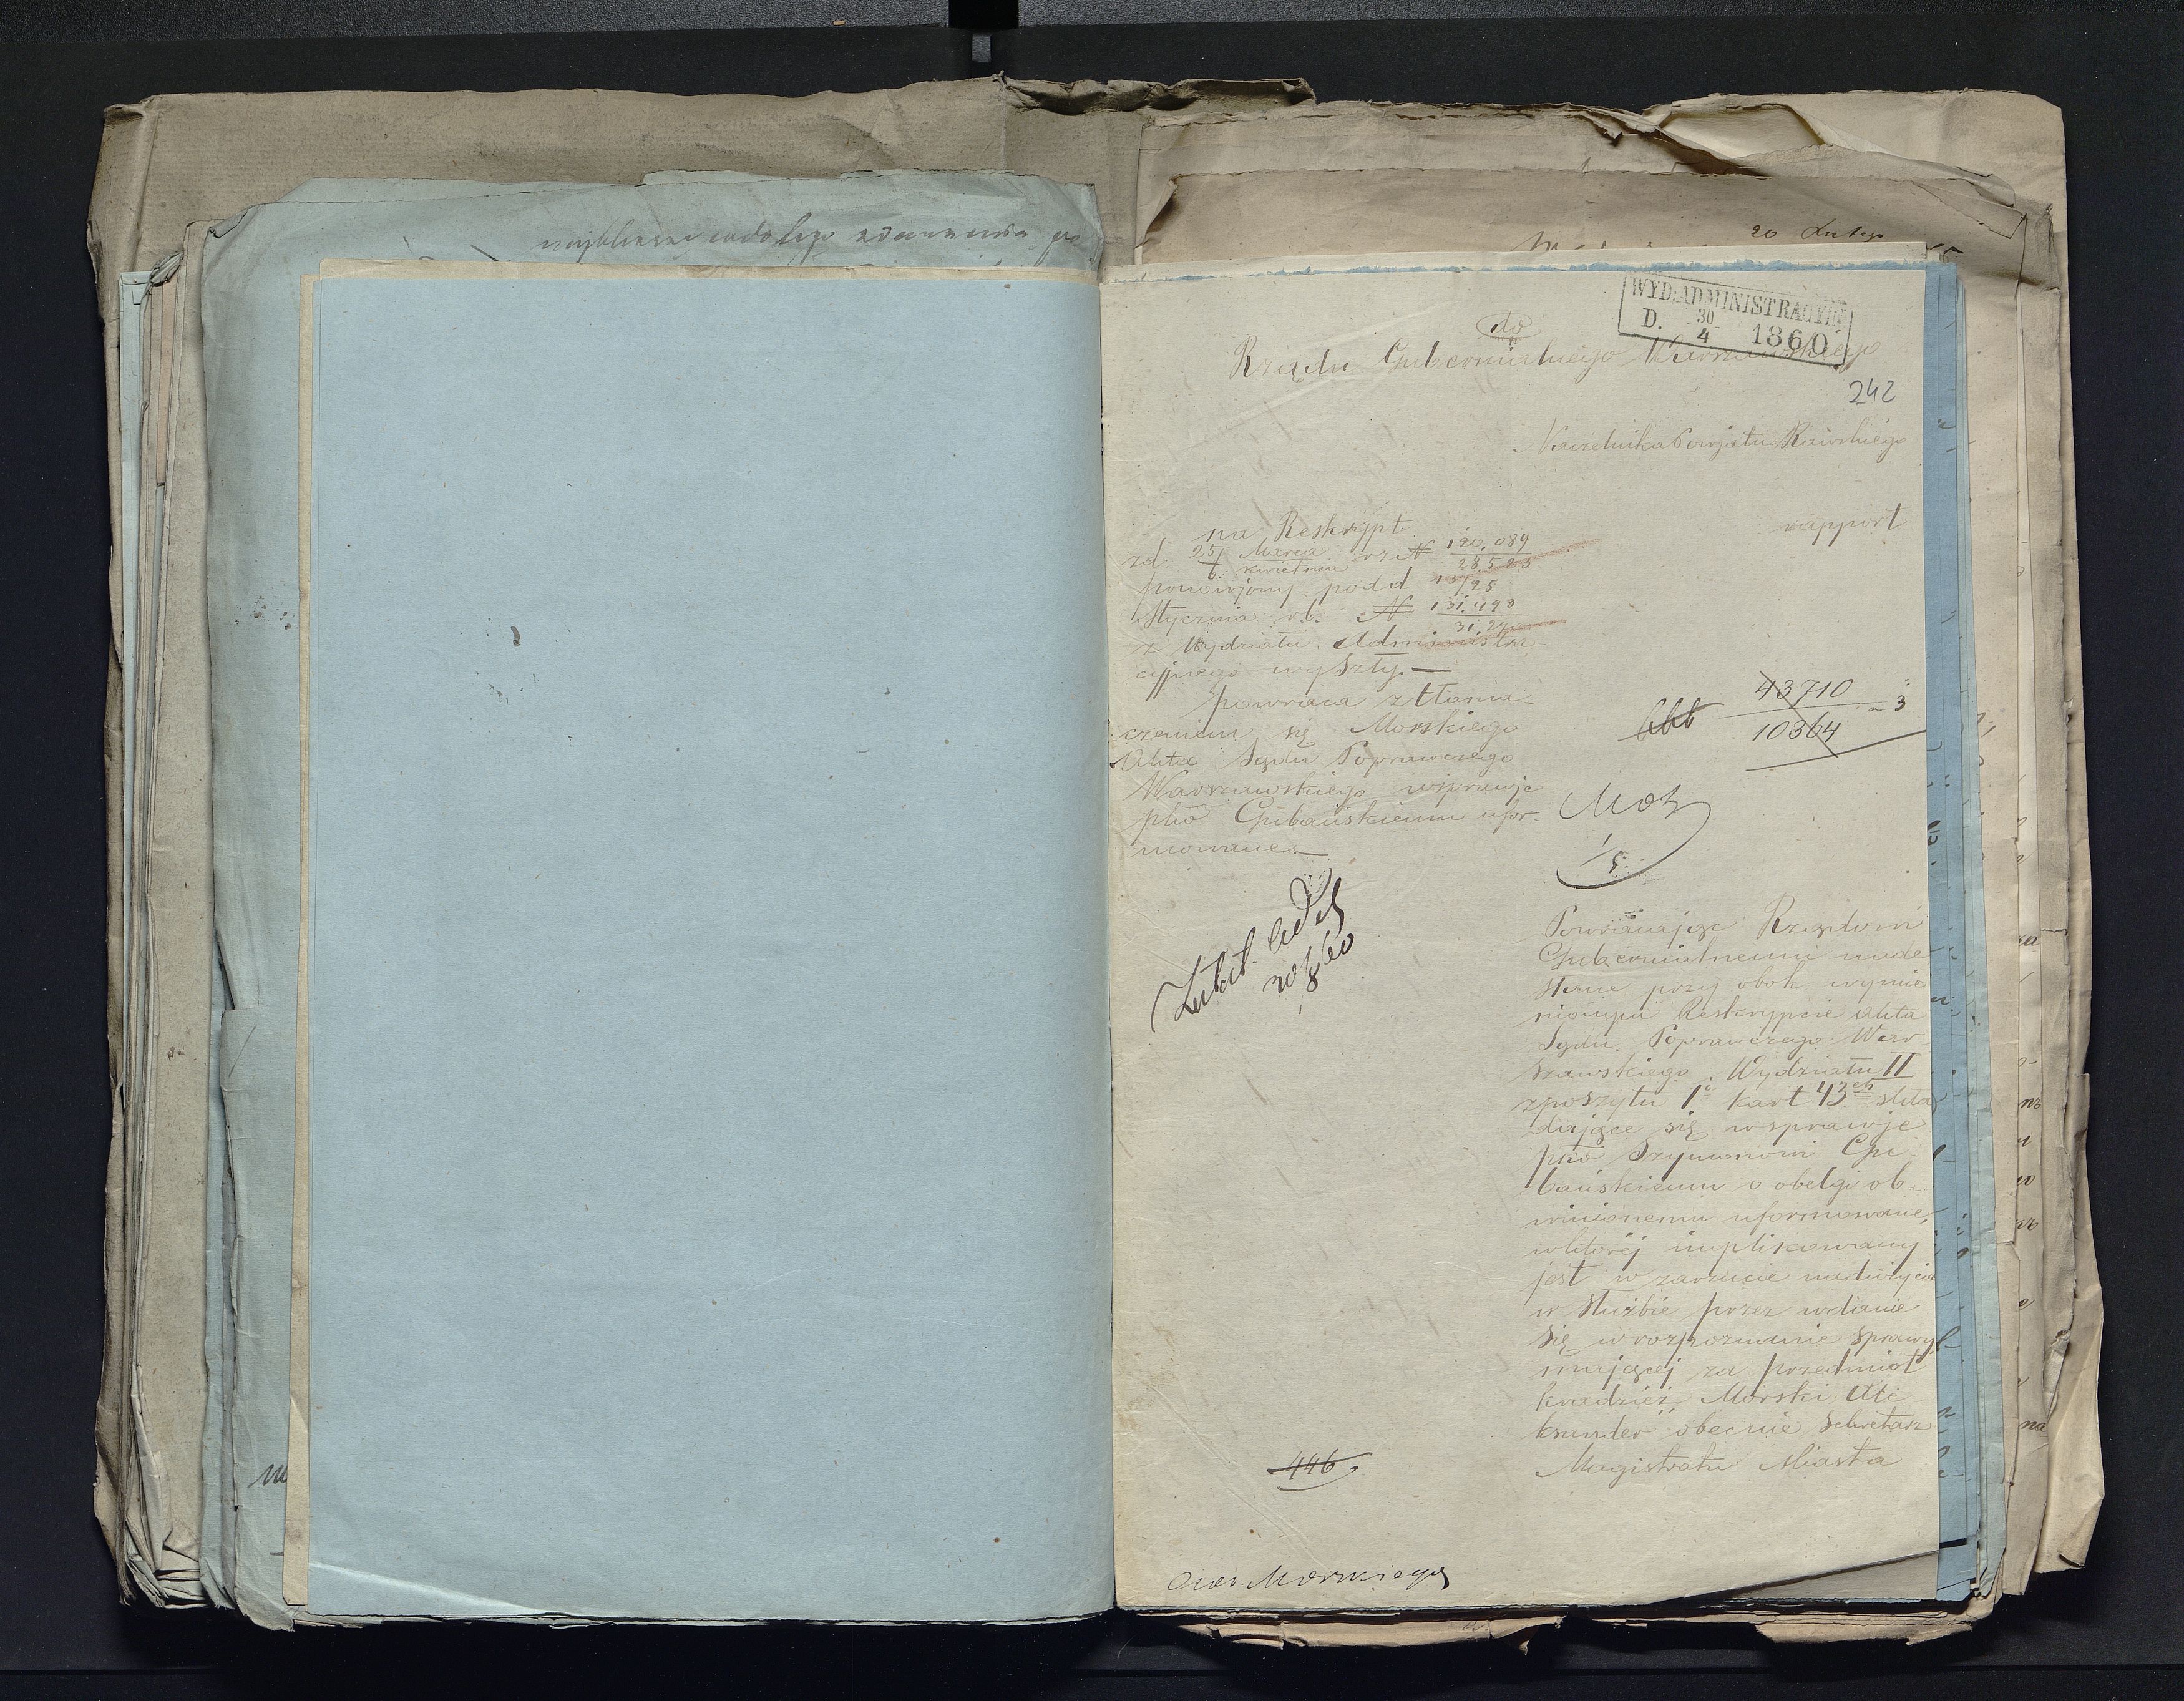 20 Lutego
WYD: ADMINISTRACYJN
D. 30/4 1860
do
Rządu Gubernialnego Warszawskiego
242
Naczelnika Powiatu Rawskiego
rapport
na Reskrypt
zd. 25/6 Marca/kwietnia rz N 120,089/28523
ponowjony pod d. 13/25
Stycznia r.b. N 131,493
z Wydziału Administra-
cyjnego wyszły.—
powraca z tłoma-
czeniem się Morskiego
Akta Sądu Poprawczego
Warszawskiego wsprawje
pko Gubańskiemu ufor-
mowane.—
43710/10364 3
446
Powracając Rządowi
Gubernialnemu nade
słane przy obok wymie
nionym Reskrypcie Akta
Sądu Poprawczego War
szawskiego Wydziału II
zposzytu 1o kart 43ch skła
dające się wsprawje
pko Szymonowi Gu
bańskiemu o obelgi ob-
winionemu uformowane,
wktórej implikowany
jest w zarzucie nadużycia
w Służbie przez wdanie
się wrozpoznanie sprawy
mającej za przedmiot
kradzież Morski Ale
ksander obecnie Sekretarz
Magistratu Miasta
Morskiego